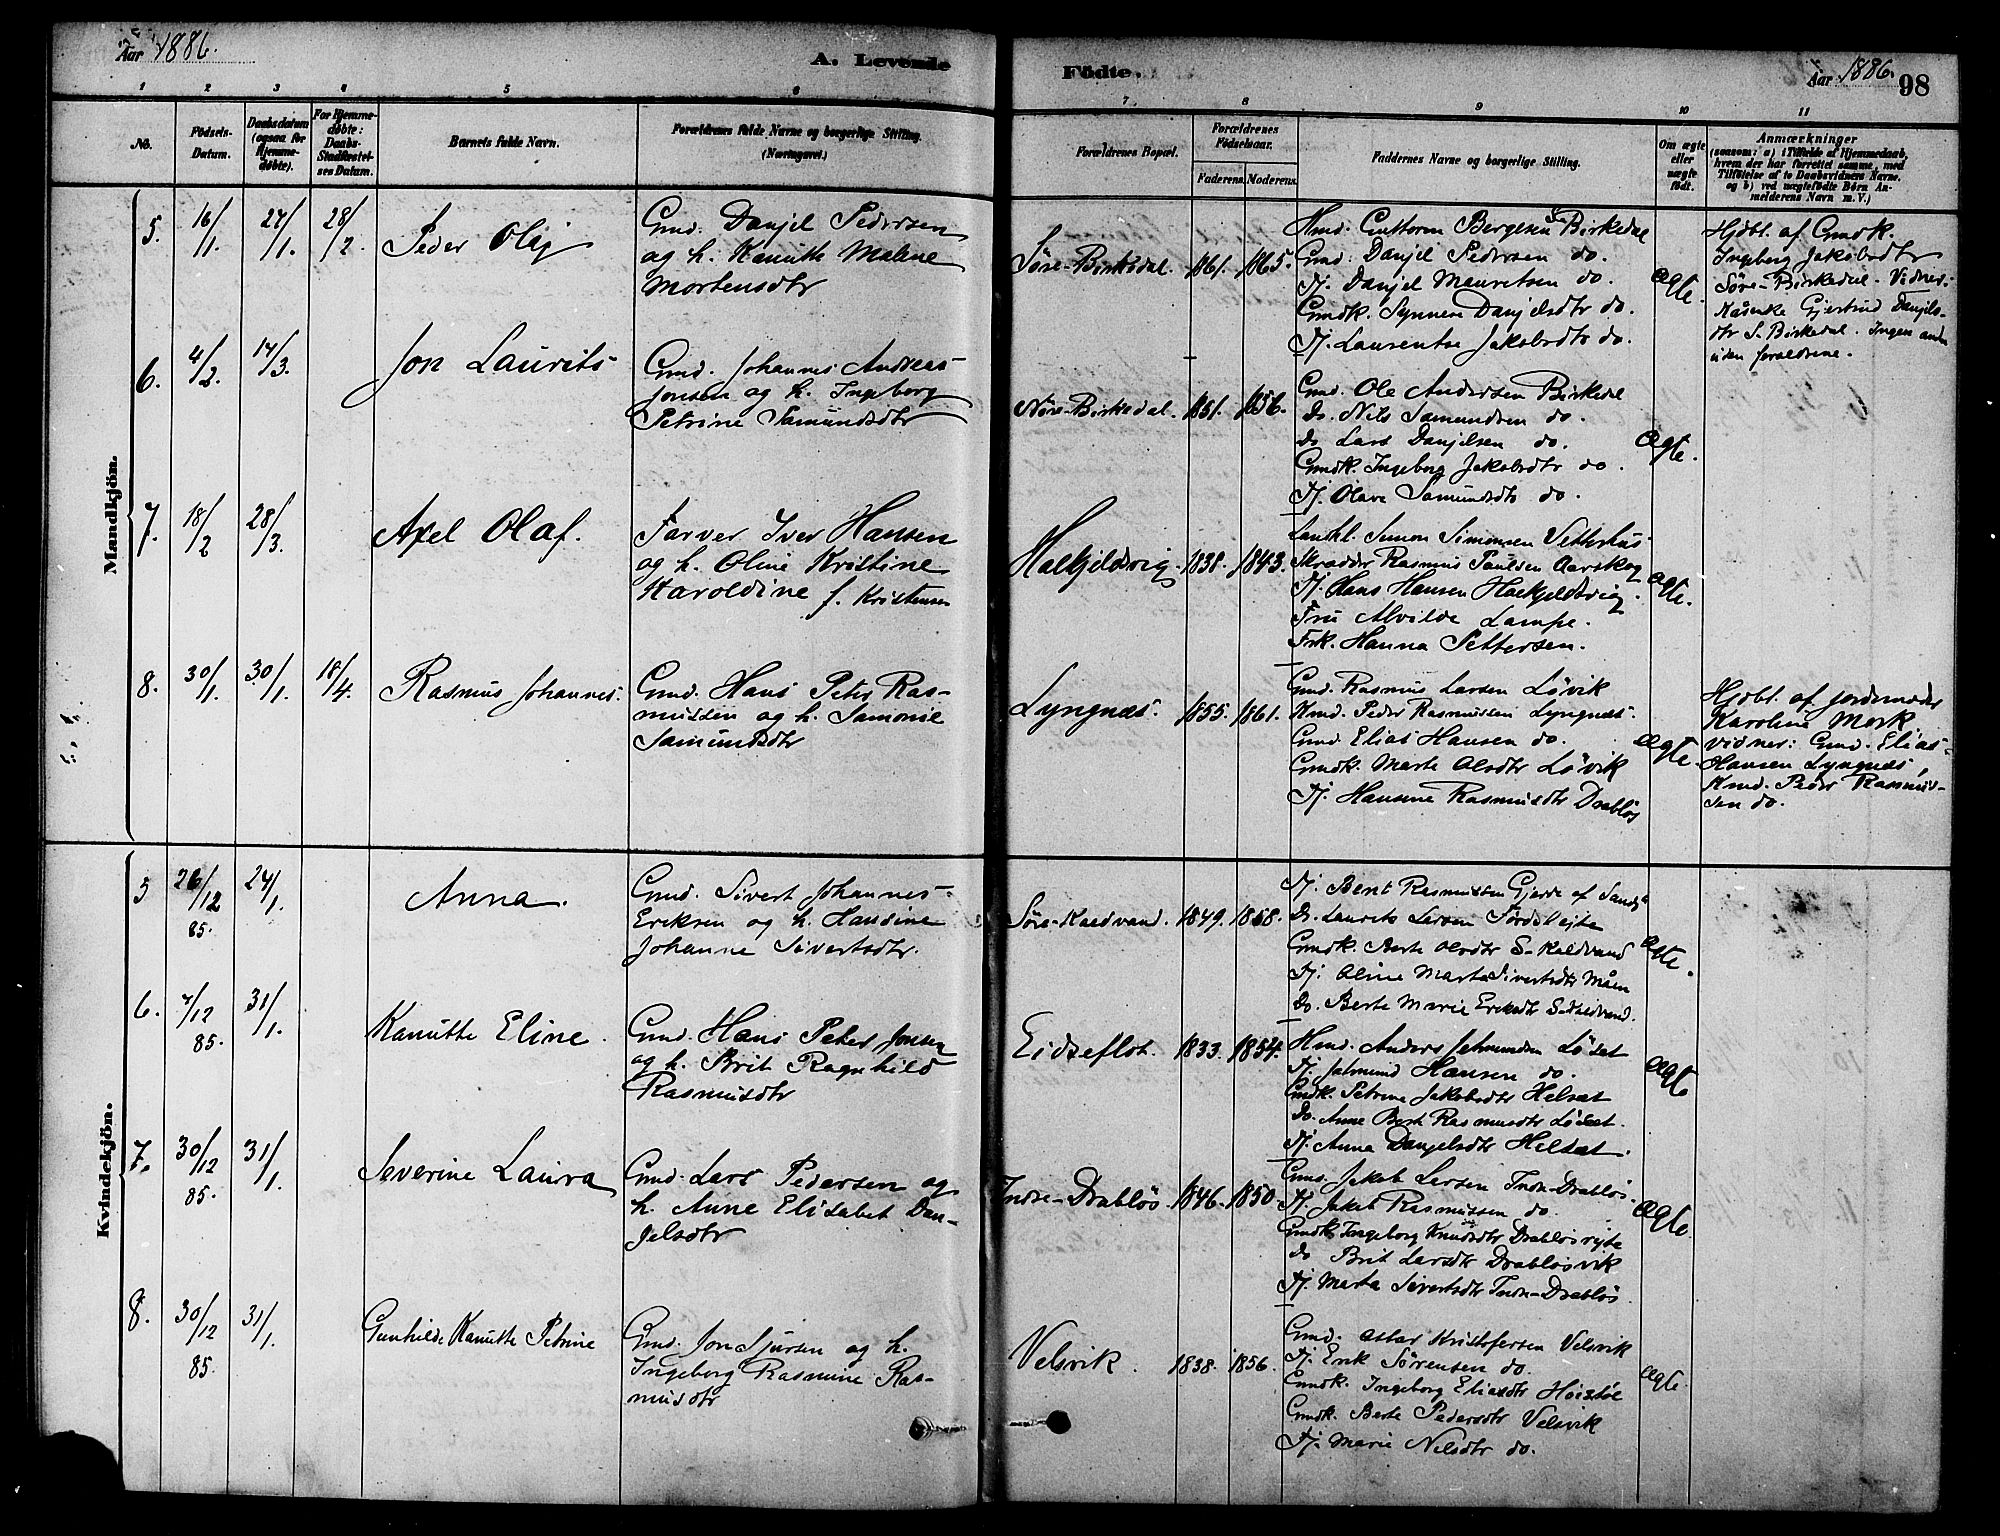 Aar 1886.
A. Levende
Födte.
Aar 1886.
98
1 2 3 4 5 6 7 8 9 10 11
No.
Födsels-
Datum.
Daabsdatum
(ogsaa for
Hjemme-
døbte).
For Hjemme-
døbte:
Daabs-
Stadfæstel-
ses Datum.
Barnets fulde Navn.
Forældrenes fulde Navne og borgerlige Stilling.
(Næringsvei.)
Forældrenes Bopæl.
Forældrenes
Fødselsaar.
Faderens. Moderens.
Faddernes Navne og borgerlige Stilling.
Om ægte
eller
uægte
født.
Anmærkninger
(saasom: a) i Tilfælde af Hjemmedaab,
hvem der har forrettet samme, med
Tilføielse af to Daabsvidners Navne,
og b) ved uægtefødte Børn An-
melderens Navn m. V.)
Mandkjön.
5. 16/1. 27/1. 28/2. Peder Olaj
Gmd. Danjel Pedersen
og h. Kanutte Malene
Mortensdtr
Søre-Birkedal. 1861. 1865.
Hmd. Guttorm Bergesen Birkedal
Gmd. Danjel Pedersen do.
Fj. Danjel Mauritsen do.
Gmdk. Synneve Danjelsdtr do.
Fj. Laurentse Jakobsdtr do.
Ægte.
Hjdbt. af Gmdk.
Ingeborg Jakobsdtr
Søre-Birkedal. Vidner:
Gjertrud Danjels-
dtr S. Birkedal. Ingen anden
uden forældrene.
6. 4/2. 14/3. Jon Laurits
Gmd. Johannes Andreas
Jonsen og h. Ingeborg
Petrine Samundsdtr
Nøre-Birkedal. 1851. 1856.
Gmd. Ole Andersen Birkedal
Do. Nils Samundsen do.
Do Lars Danjelsen do.
Gmdk. Ingeborg Jakobsdtr do.
Fj. Olave Samundsdtr do.
Ægte.
7. 18/2 28/3. Axel Olaf.
Farver Iver Hansen
og h. Oline Kristine
Haroldine f. Kristensen
Haekjeldsvig. 1838. 1843.
Landhl. Simon Simonsen Vetterhus
Skrædder Rasmus Paulsen Aarskog
Fj. Hans Hansen Haekjeldsvig.
Fru Alvilde Lampe.
Frk. Hanna Pettersen.
Ægte.
8. 30/1. 30/1. 18/4. Rasmus Johannes.
Gmd. Hans Peter Ras-
mussen og h. Samonie
Samundsdtr
Lyngnæs. 1855. 1861.
Gmd. Rasmus Larsen Løvik
Kmd. Peder Rasmussen Lyngnæs.
Gmd. Elias Hansen do.
Gmdk. Marte Olsdtr Løvik
Fj. Hansine Rasmusdtr Drabløs
Ægte.
Hjdbt. af jordemoder
Karoline Mork
vidner: Gmd. Elias
Hansen Lyngnæs,
Kmd. Peder Rasmus-
sen do.
Kvindekjön.
5 26/12 85. 24/1. Anna.
Gmd. Sivert Johannes
Eriksen og h. Hansine
Johanne Sivertsdtr.
Søre-Kaldvand. 1849. 1858.
Fj. Bent Rasmussen Gjerde af
Do. Laurits Larsen
Gmdk. Berte Olsdtr S-Kaldvand
Fj. Oline Marte Sivertsdtr Maan
Do. Berte Marie Eriksdtr S-Kaldvand.
Ægte.
6. 7/12 85. 31/1. Kanutte Eline.
Gmd. Hans Peter Jonsen
og h. Brit Ragnhild
Rasmusdtr
Eidseflot. 1833. 1854.
Hmd. Anders Jetmundsen Løset
Fj. Jetmund Hansen do.
Gmdk. Petrine Jakobsdtr Helsæt
Do. Anne Berte Rasmusdtr Løset.
Fj. Anna Danjelsdtr Helsæt.
Ægte
7. 30/12 85. 31/1. Severine Laura
Gmd. Lars Pedersen og
h. Anne Elisabet Dan-
jelsdtr
Indre-Drabløs 1846. 1850.
Gmd. Jakob Larsen Indr-Drabløs.
Fj. Jakob Rasmussen do.
Gmdk. Ingeborg Knudsdtr
Do Brit Larsdtr Drabløsvik
Fj. Marta Sivertsdtr Indr-Drabløs.
Ægte
8. 30/12 85. 31/1. Gunhilde Kanutte Petrine
Gmd. Jon Sjursen og h.
Ingeborg Rasmine Ras-
musdtr
Velsvik. 1838. 1856.
Gmd. Kristofersen Velsvik
Fj. Erik Sørensen do.
Gmdk. Ingeborg Eliasdtr
Gmdk. Berte Pedersdtr Velsvik
Fj. Marie Nilsdtr do.
Ægte.